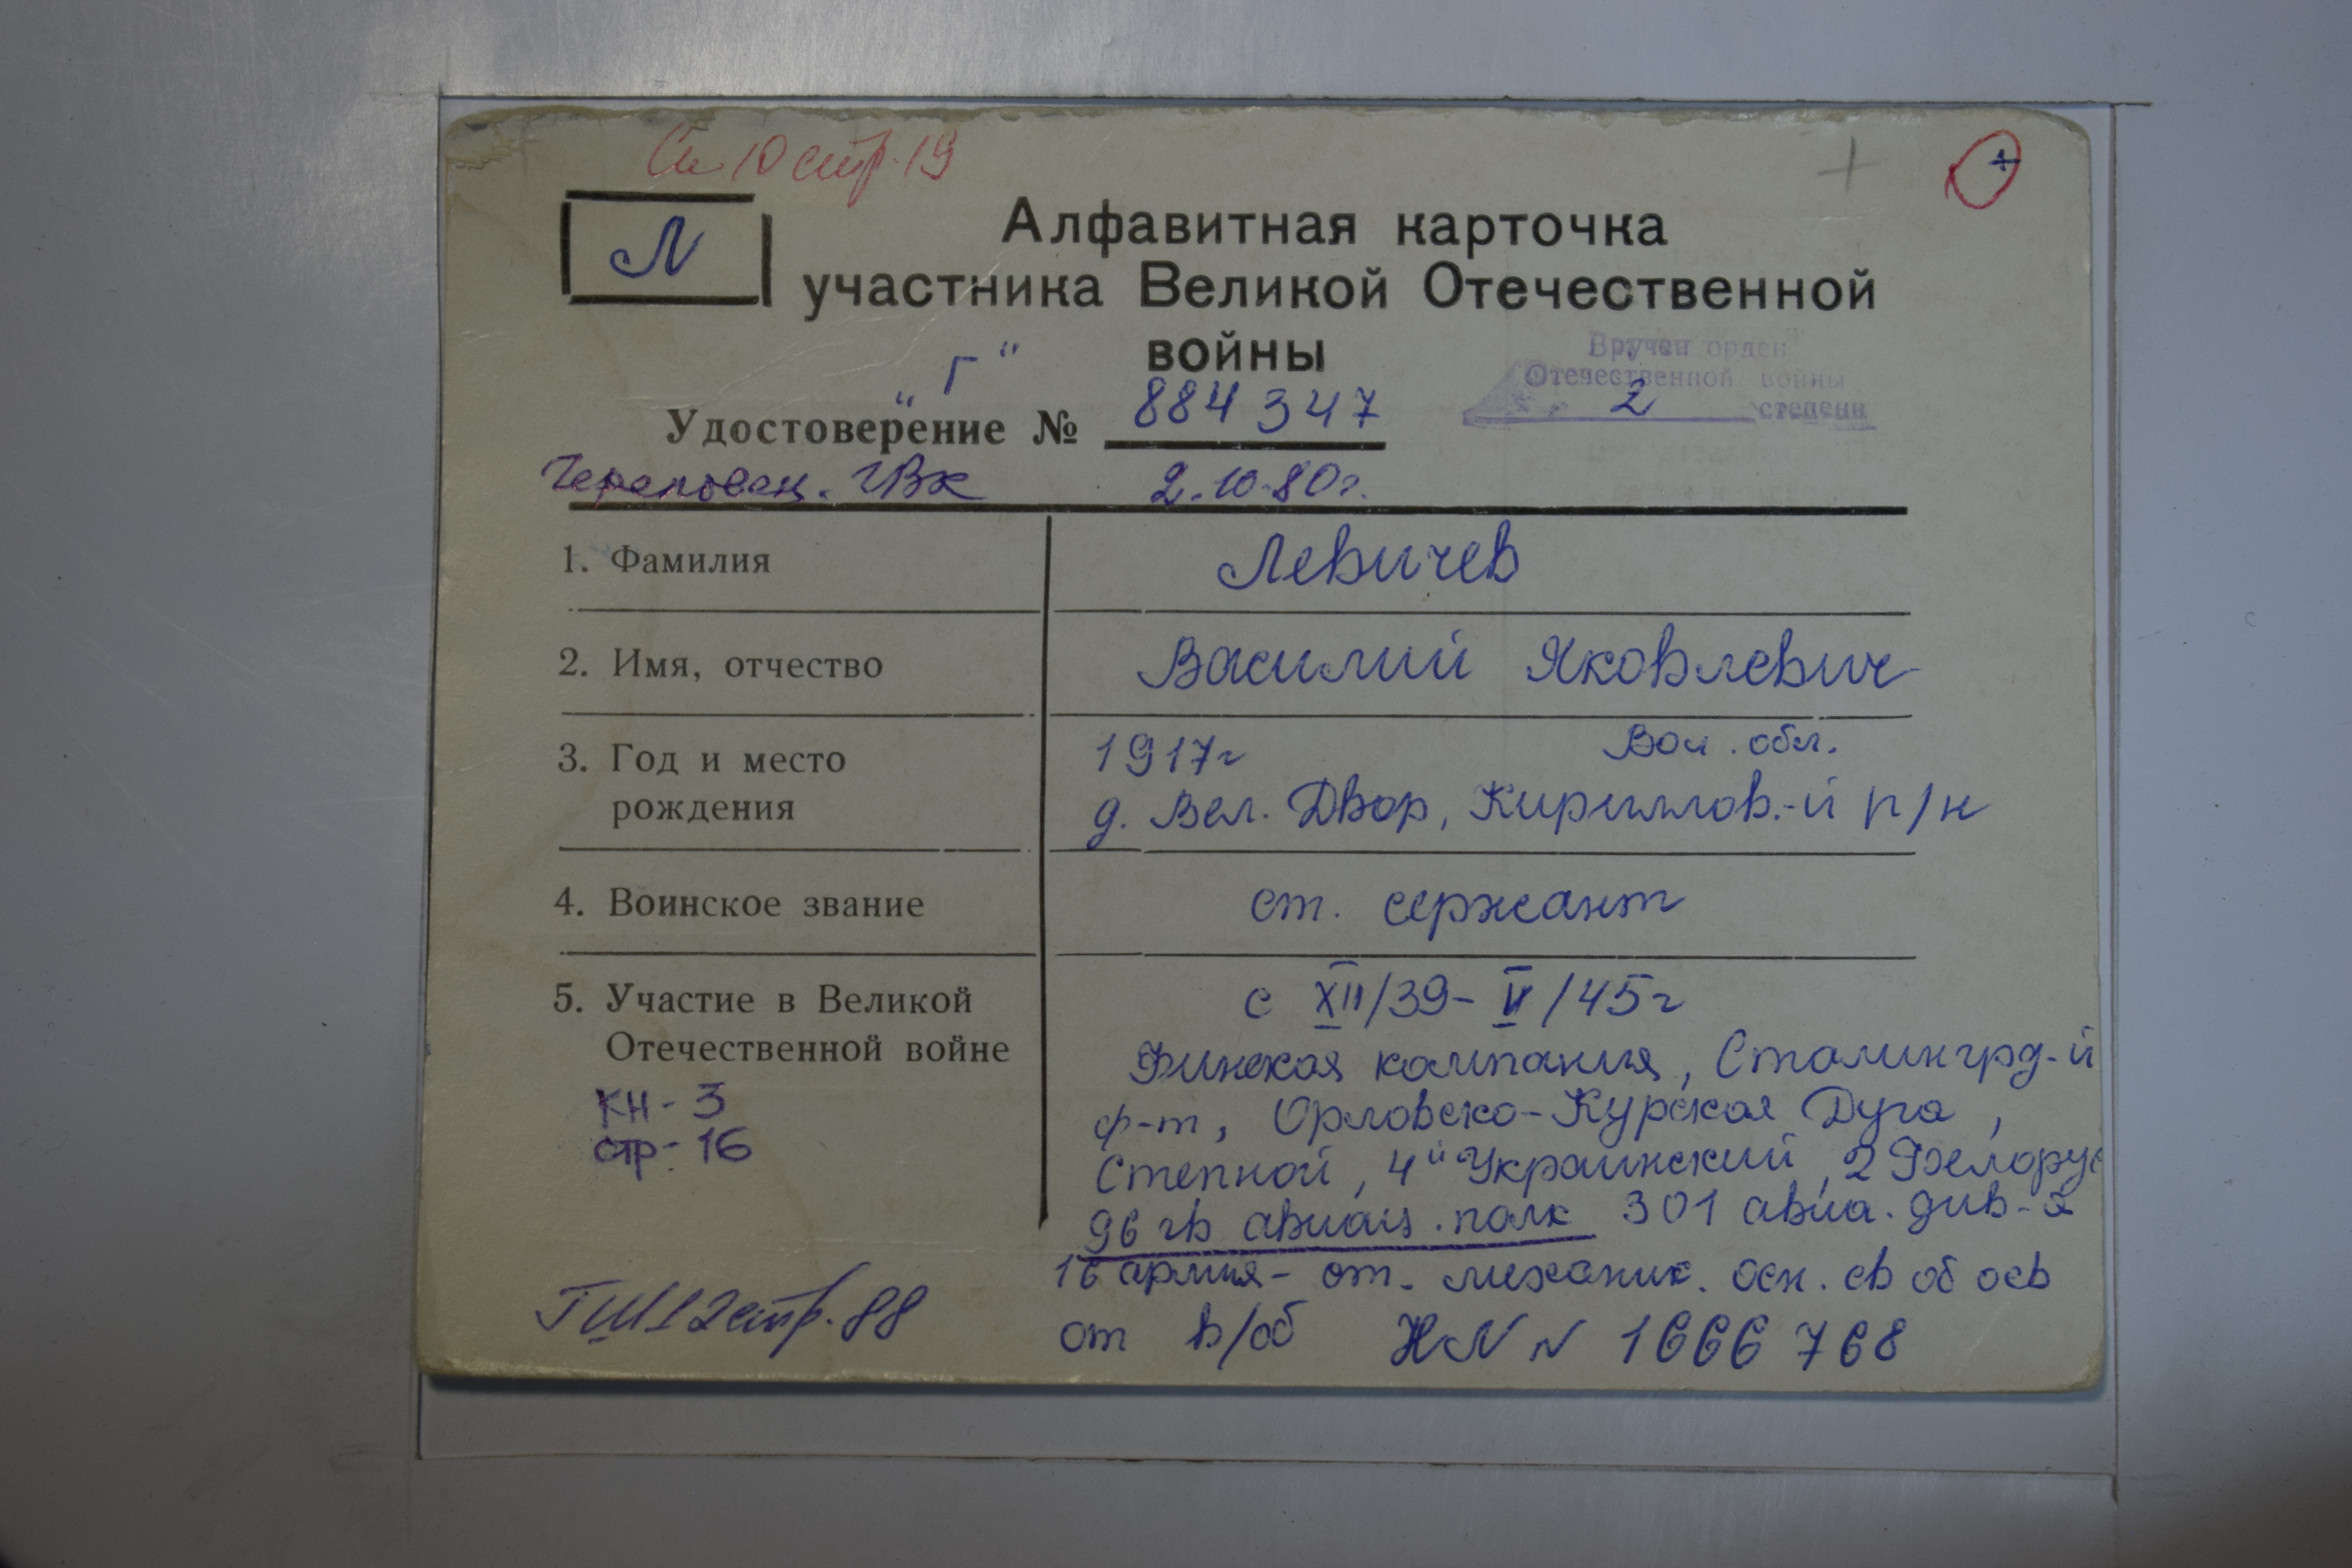 Сп 10 стр. 19
+
+
Л
Алфавитная карточка
участника Великой Отечественной
войны
Вручен орден
Отечественной войны
2 степени
„Г“
Удостоверение № 884347
Череповец. ГВК 2.10.80г.
1. Фамилия Левичев
2. Имя, отчество Василий Яковлевич
3. Год и место рождения 1917г Вол. обл.
д. Вел. Двор, Кириллов.-й р/н
4. Воинское звание ст. сержант
5. Участие в Великой Отечественной войне с XII/39-V/45г
Финская кампания, Сталингрд-й
ф-т, Орловско-Курская Дуга,
Степной, 4й Украинский, 2 Белорус
96 гв авиац. полк 301 авиа. див-я
16 армия- ст. механик. осн. св об осв
от в/об НЛ № 1666768
КН-3
стр-16
ГШ12стр.88